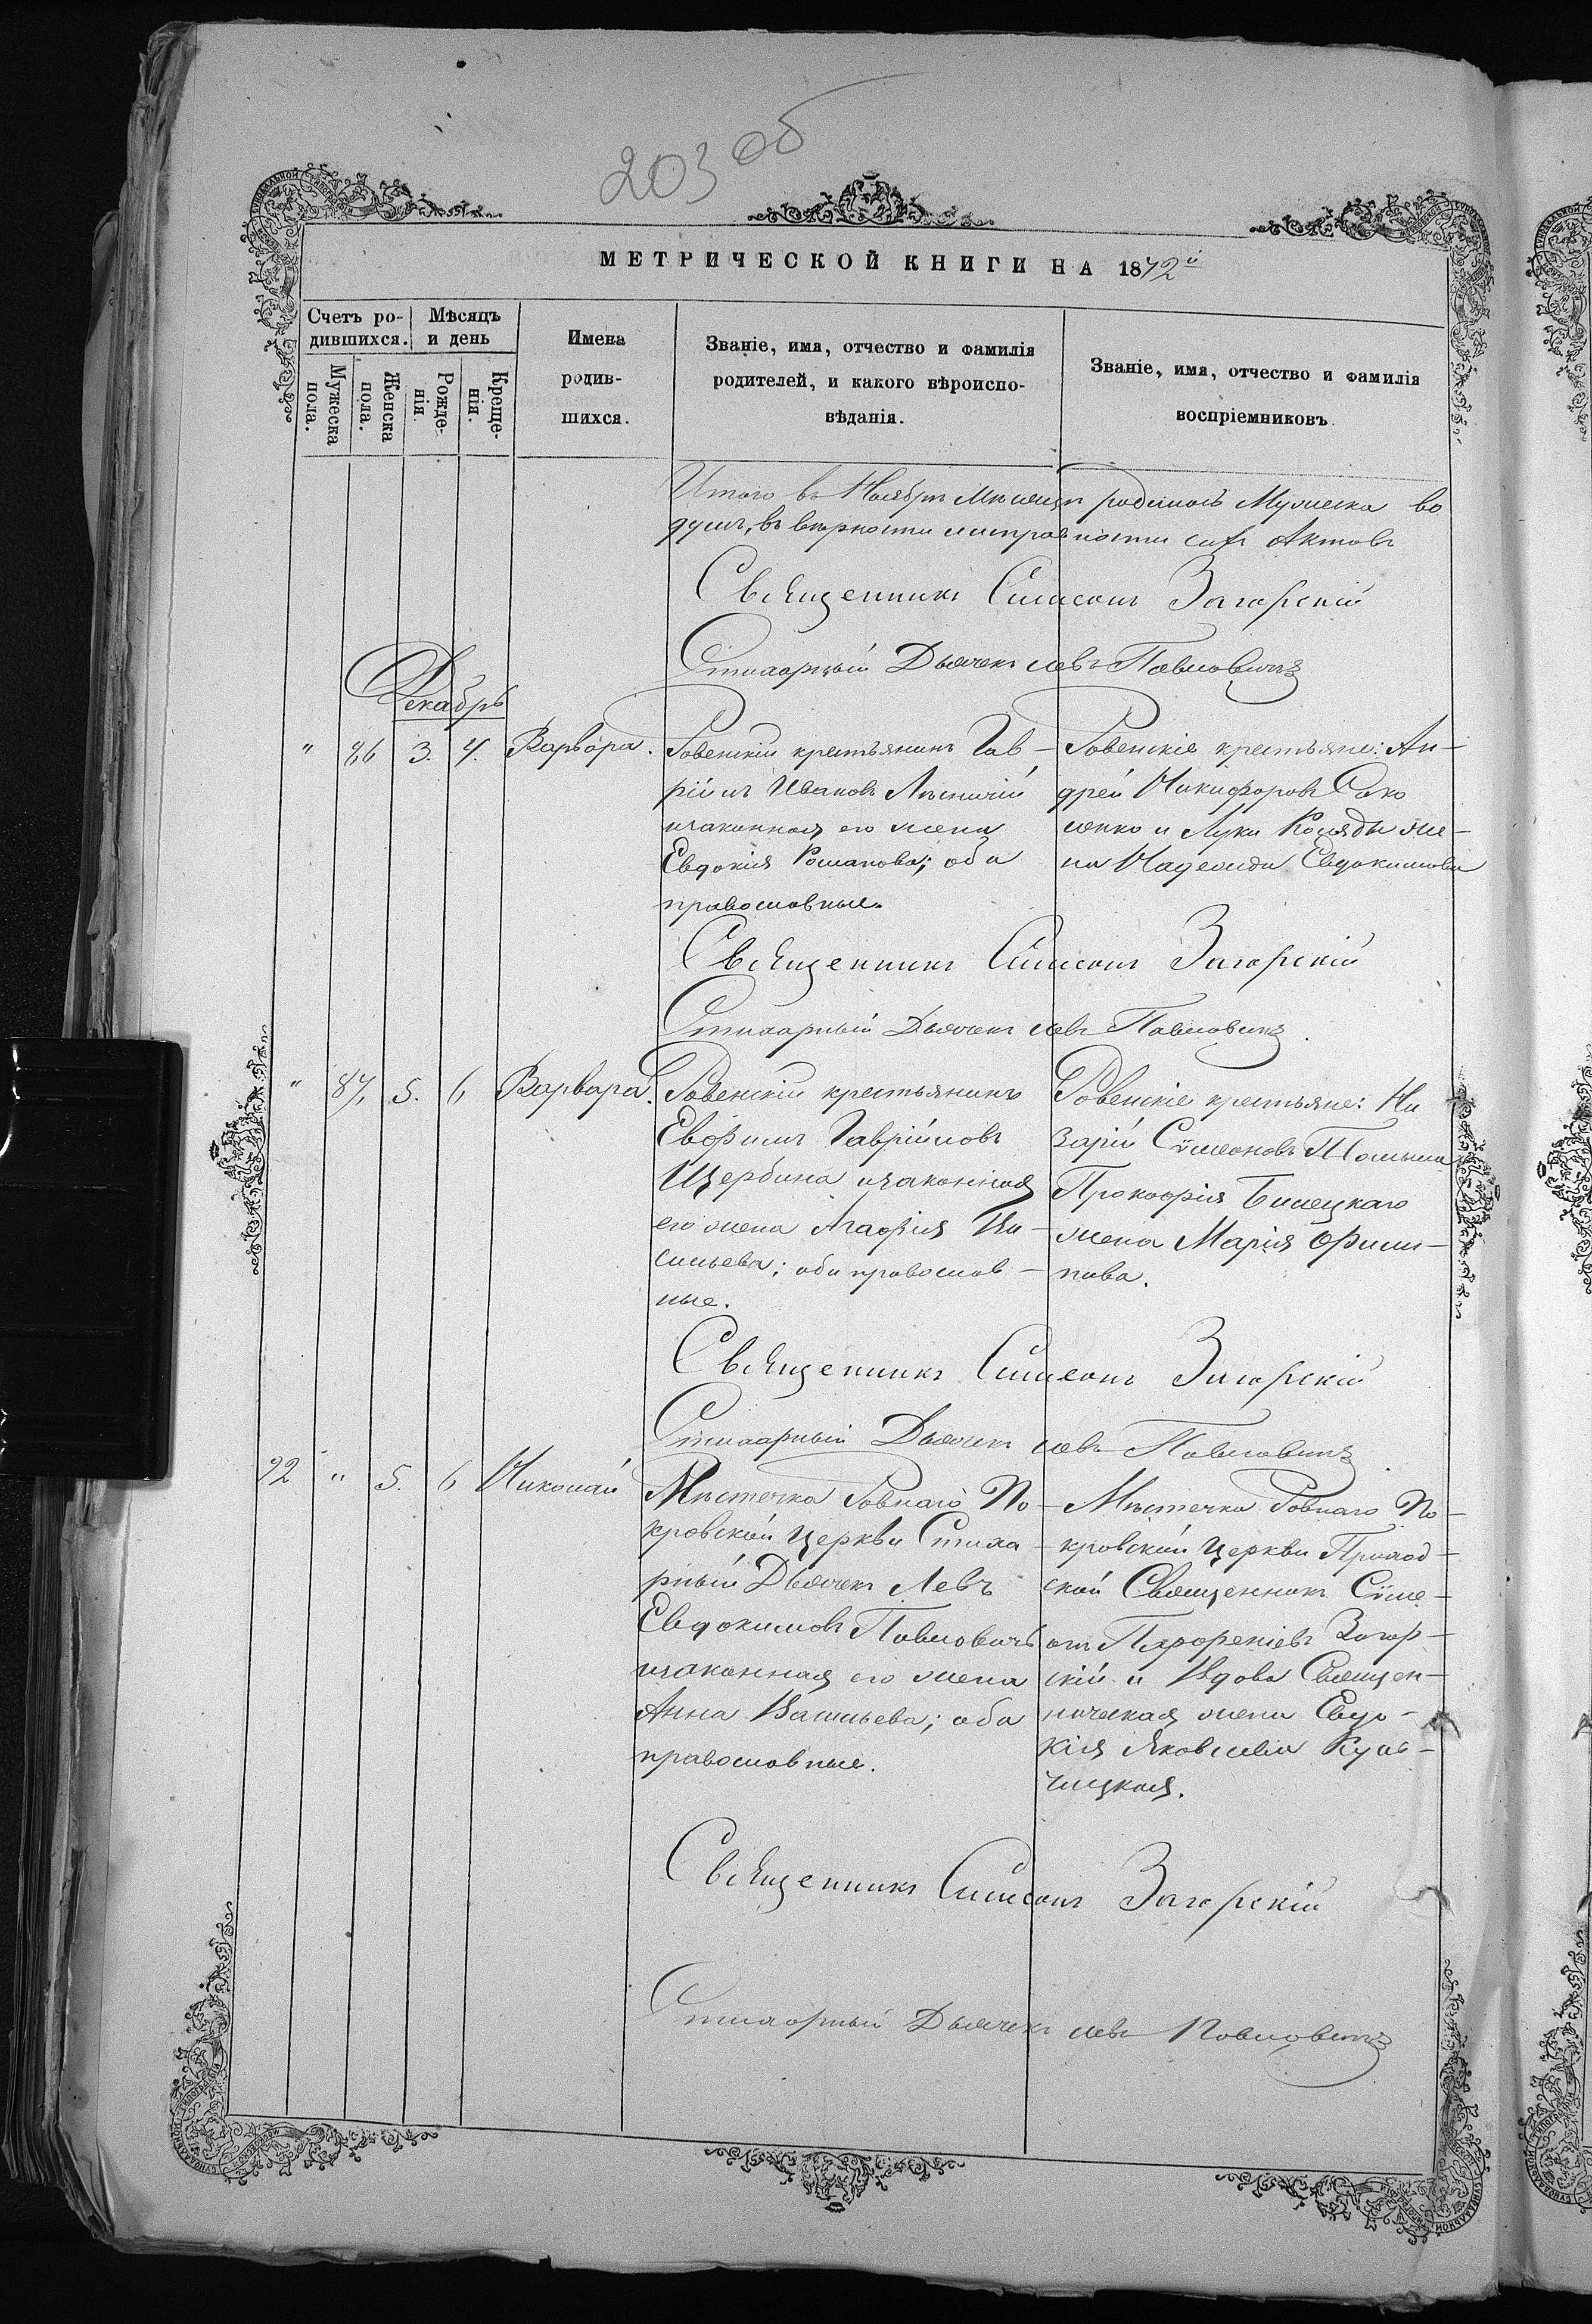 203 об
МЕТРИЧЕСКОЙ КНИГИ НА 1872й
Счетъ родившихся.
Мужеска пола.
Женска пола.
Мѣсяцъ и день
Рожденія.
Крещенія.
Имена родившихся.
Званіе, имя, отчество и фамилія
родителей, и какого вѣроиспо-
вѣданія.
Званіе, имя, отчество и фамилія
воспріемниковъ.
Итого въ Ноябрѣ Мѣсяцѣ родилось Мужеска
душъ, въ вѣрности и исправности сихъ Актовъ
Священникъ Симеонъ Загорскій
Стихарный Дьячекъ Левъ Павловичъ
Декабрь
" 86 3. 4. Варвара.
Ровенскій крестьянинъ Гав-
ріилъ Ивановъ
изаконная его жена
Евдокія Романова; оба
православные.
Ровенскіе крестьяне: Ан-
дрей Никифоровъ
и Луки Коляды же-
на Надежда Евдокимова
Священникъ Симеонъ Загорскій
Стихарный Дьячекъ Левъ Павловичъ.
" 87, 5. 6 Варвара.
Ровенскій крестьянинъ
Евфимъ Гавріиловъ
Щербина изаконная
его жена Агафія Ва-
сильева; оба православ-
ные.
Ровенскіе крестьяне: На
зарій Сѵмеоновъ
Прокофія Билецкаго
жена Марія Филип-
пова.
Священникъ Симеонъ Загорскій
Стихарный Дьячекъ Левъ Павловичъ
92 " 5. 6 Николай
Мѣстечка Ровнаго По-
кровской Церкви Стиха-
рный Дьячекъ Левъ
Евдокимовъ Павловичъ
изаконная его жена
Анна Васильева; оба
православные.
Мѣстечка Ровнаго По-
кровской Церкви Приход-
ской Священникъ Сѵме-
онъ Загор-
скій и Вдова Священ-
ническая жена Евдо-
кія Яковлева Куль-
чицкая.
Священникъ Симеонъ Загорскій
Стихарный Дьячекъ Левъ Павловичъ